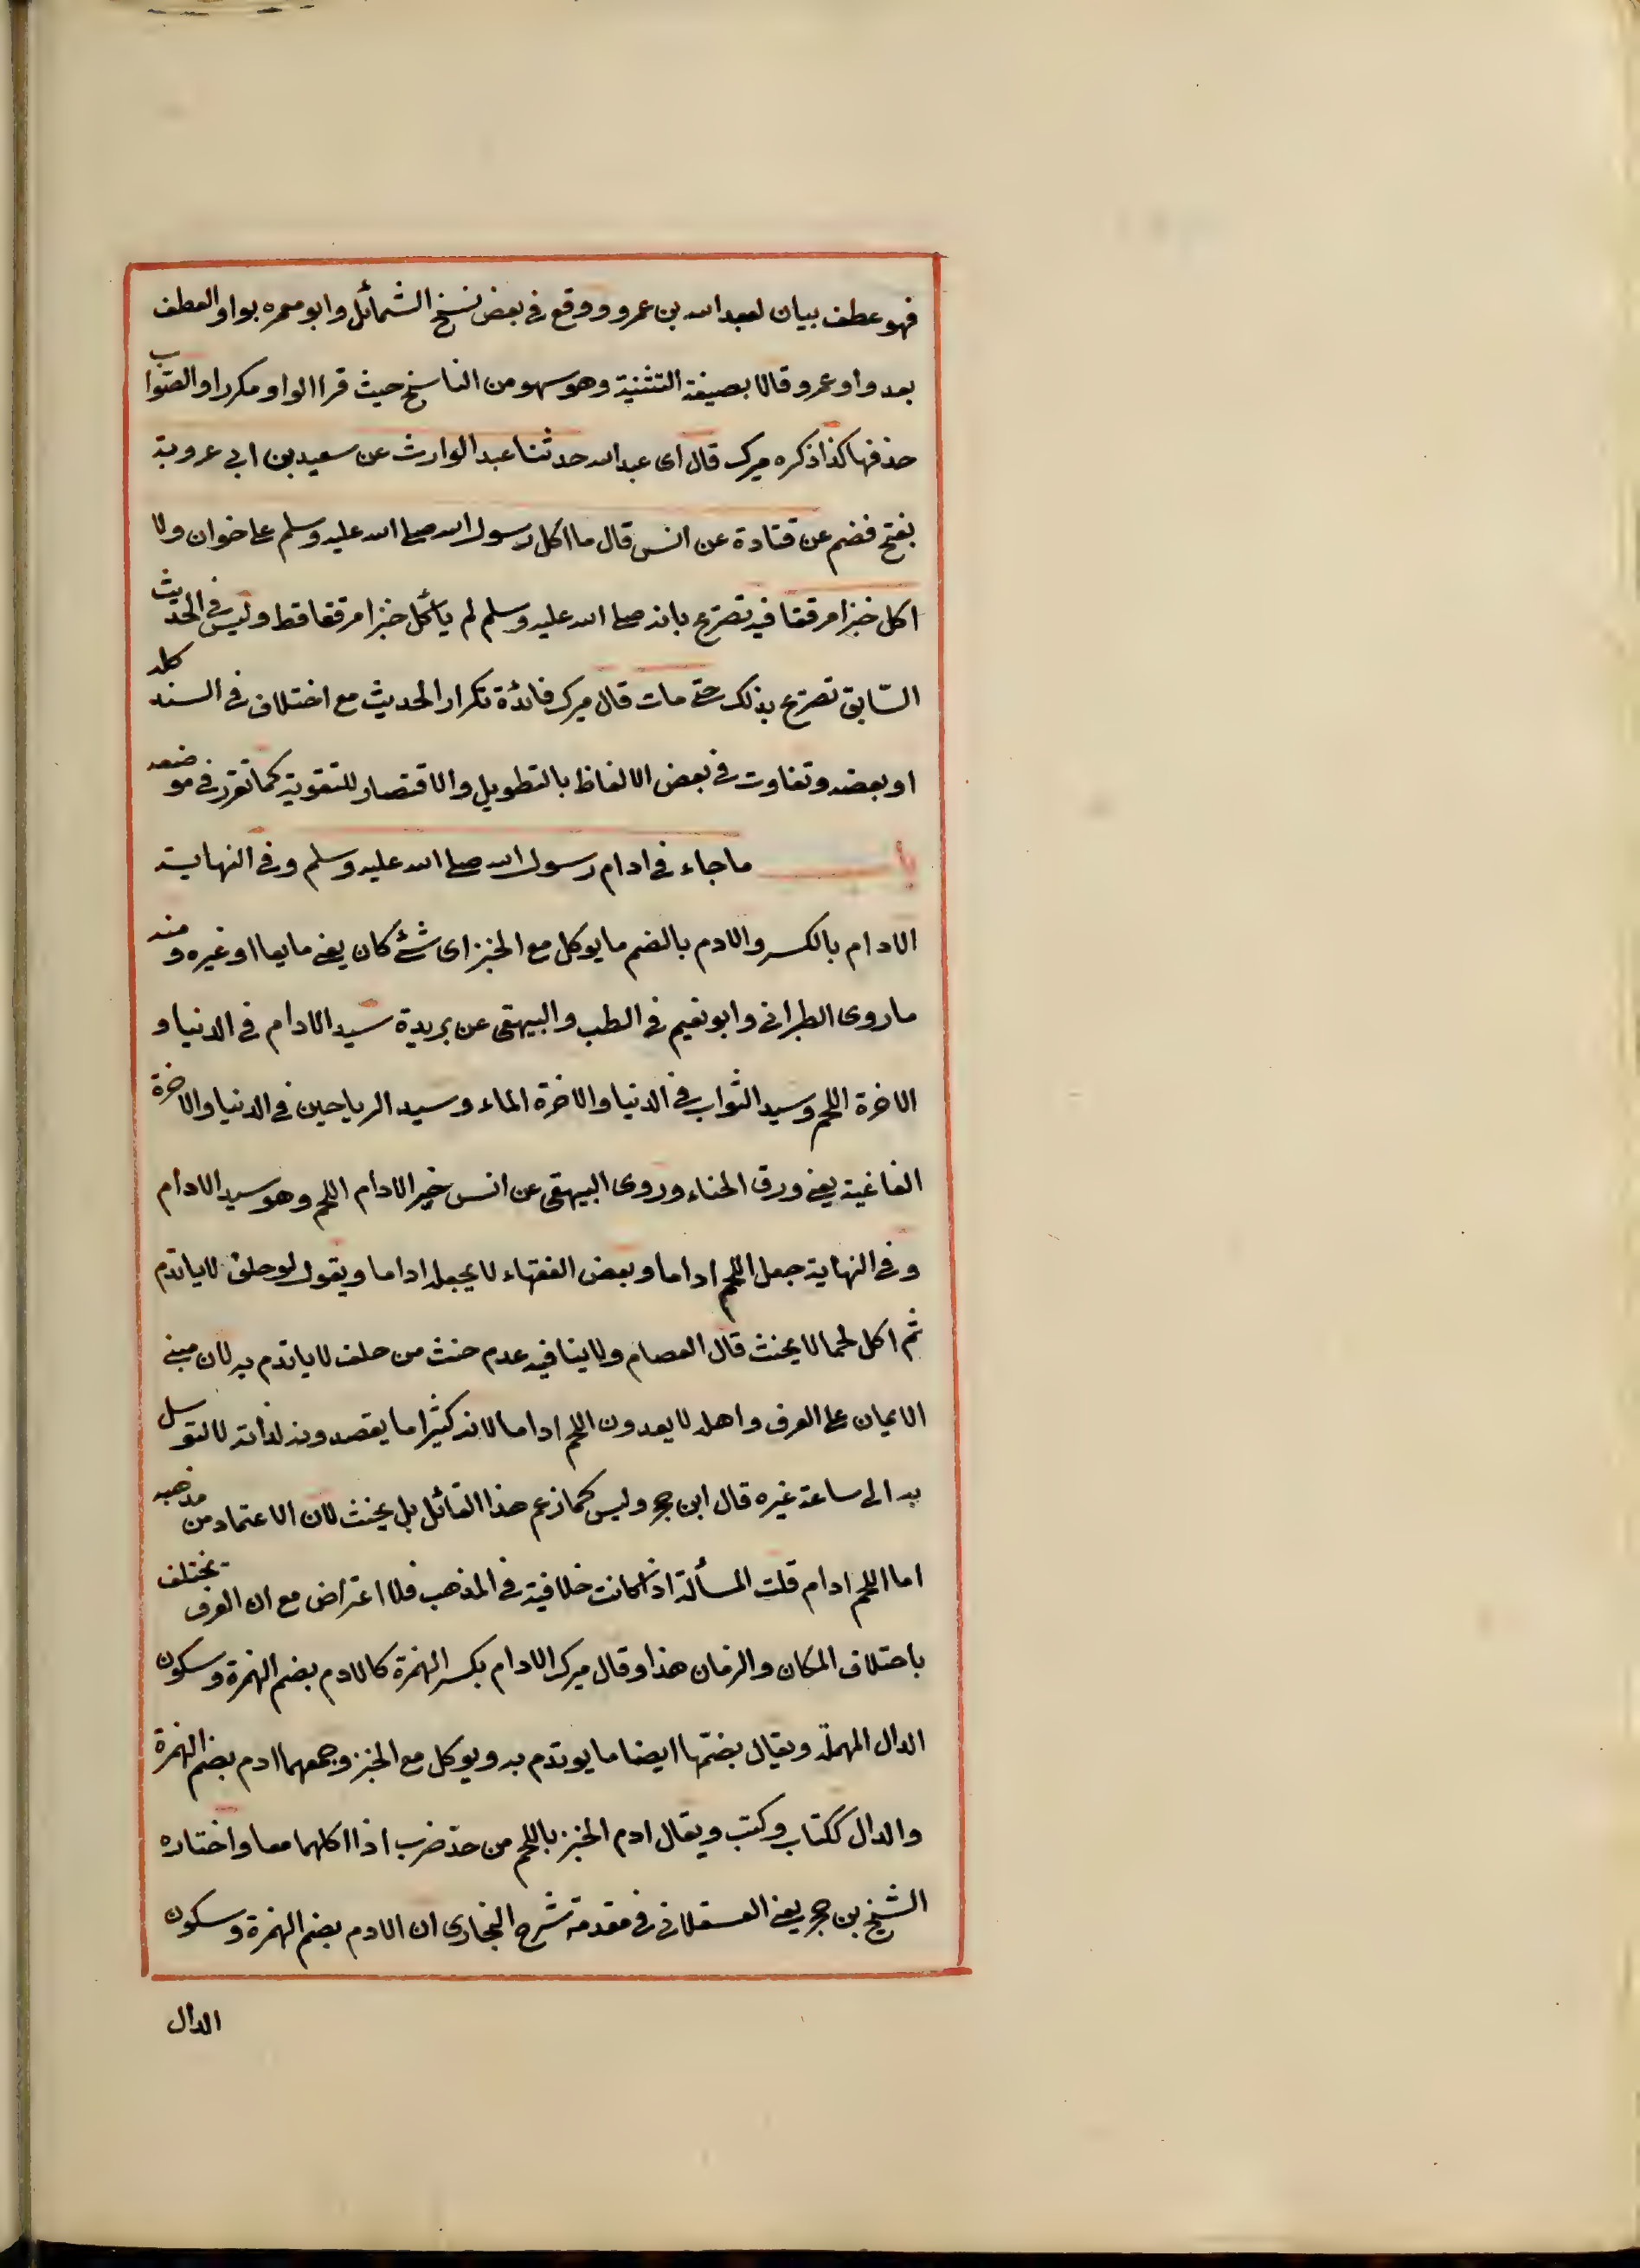 فهو عطف بيان لعبد الله بن عمرو ووقع في بعض نسخ الشمائل وابو معمر بواو العطف
بعد واو عمرو وقالا بصيغة التثنية وهو سهو من الناسخ حيث قرا الواو مكررا والصواب
حذفها كذا ذكره ميرك قال اى عبد الله حدثنا عبد الوارث عن سعيد بن ابي عروبة
بفتح فضم عن قتادة عن انس قال ما اكل رسول الله صلى الله عليه وسلم على خوان ولا
اكل خبزا مرققا فيه تصريح بانه صلى الله عليه وسلم لم يأكل خبزا مرققا قط وليس في الحديث
السّابق تصريح بذلك حتى مات قال ميرك فائدة تكرار الحديث مع اختلاف في السند كله
او بعضه وتفاوت في بعض الالفاظ بالتطويل والاقتصار للتقوية كما تقرر في موضعه
باب ما جاء في ادام رسول الله صلى الله عليه وسلم وفي النهاية
الادام بالكسر والادم بالضم ما يوكل مع الخبز اى شئ كان يعني مايعا او غيره ومنه
ما روى الطبراني وابو نعيم في الطب والبيهقى عن بريدة سيد الادام في الدنيا و
الاخرة اللحم وسيد الشراب في الدنيا والاخرة الماء وسيد الرياحين في الدنيا والاخرة
الفاغية يعني ورق الحناء وروى البيهقى عن انس خير الادام اللحم وهو سيد الادام
وفي النهاية جعل اللحم اداما وبعض الفقهاء لا يجعله اداما ويقول لو حلف لا ياتدم
ثم اكل لحما لا يحنث قال العصام ولا ينافيه عدم حنث من حلف لا ياتدم به لان مبنى
الايمان على العرف واهله لا يعدون اللحم اداما لانه كثيرا ما يقصدونه لذاته لا للتوسل
به الى ساعة غيره قال ابن حجر وليس كما زعم هذا القائل بل يحنث لان الاعتماد من مذهبه
اما اللحم ادام قلت المسألة اذا كانت خلافية في المذهب فلا اعتراض مع ان العرف يختلف
باختلاف المكان والزمان هذا وقال ميرك الادام بكسر الهمزة كالادم بضم الهمزة وسكون
الدال المهملة ويقال بضمّها ايضا ما يوتدم به ويوكل مع الخبز وجمعهما ادم بضم الهمزة
والدال ككتاب وكتب ويقال ادم الخبز باللحم من حدّ ضرب اذا اكلهما معا واختاره
الشيخ بن حجر يعني العسقلاني في مقدمة شرح البخارى ان الادم بضم الهمزة وسكون
الدال